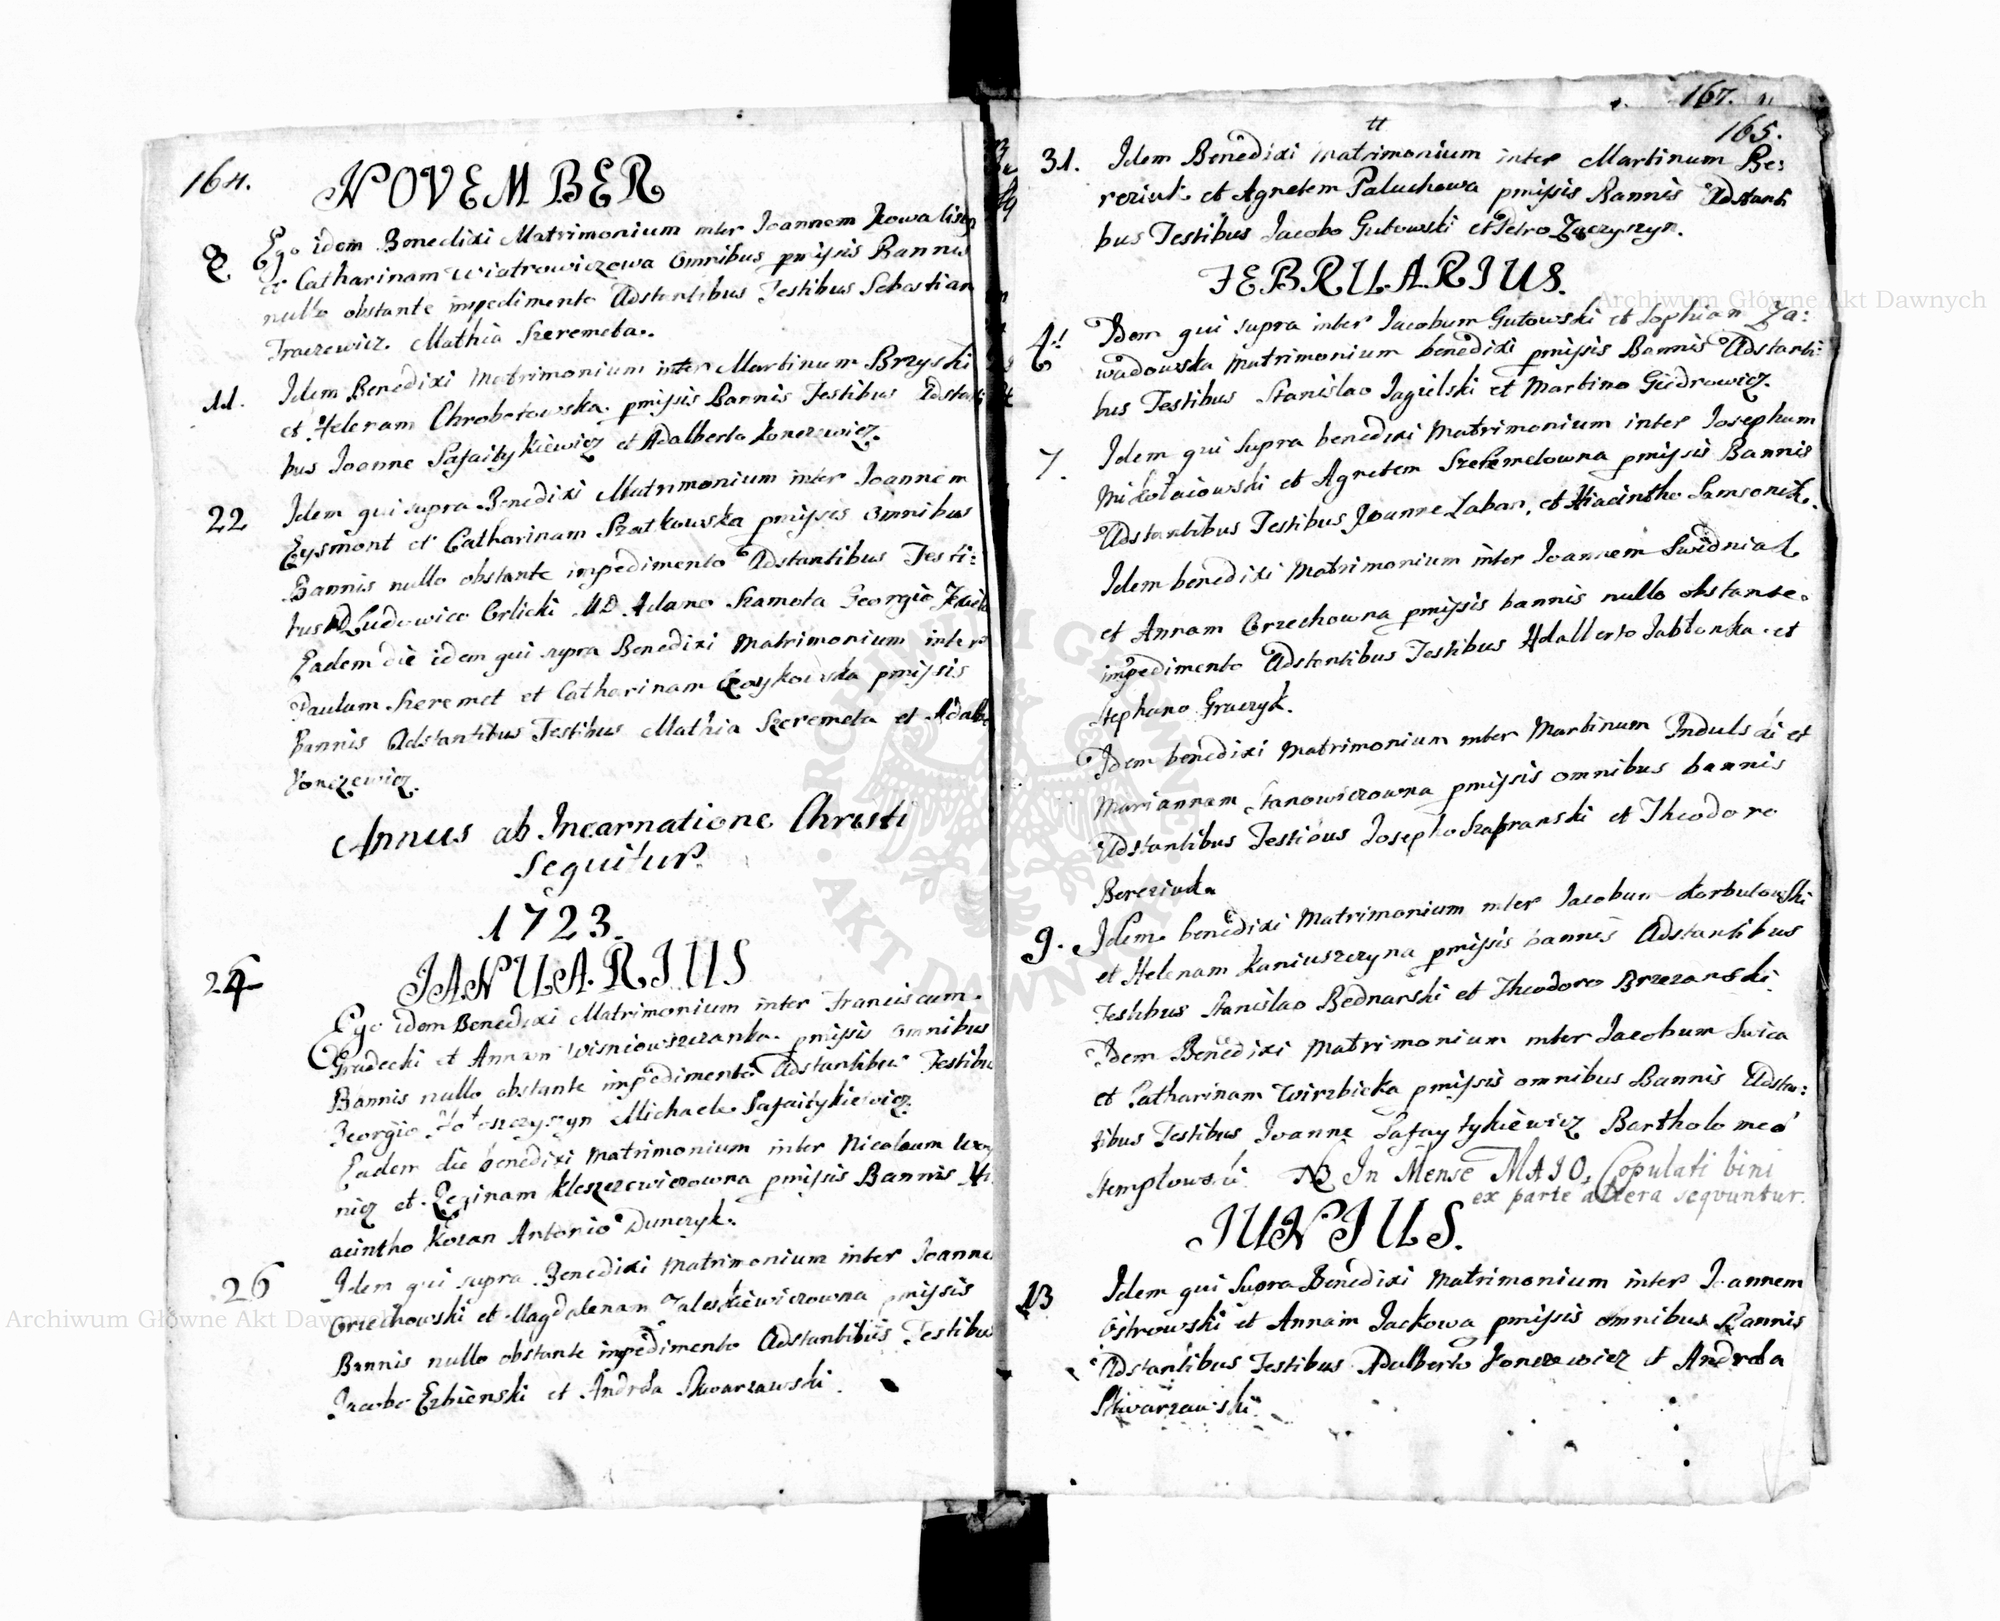 164.
NOVEMBER
8 Ego idem Benedixi Matrimonium inter Joannem
et Catharinam Wiatrowiczowa Omnibus pmisis Bannis
nullo obstante impedimento Adstantibus Testibus Sebastian
Traczewicz. Mathia Szeremeta.
11. Idem Benedixi Matrimonium inter Martinum Brzyski
et Helenam Chrobotowska. pmisis Bannis Testibus Adstanti
bus Joanne Safaitykiewicz et Adalberto Konczewicz.
22 Idem qui supra Benedixi Matrimonium inter Joannem
Eysmont et Catharinam Szatkowska pmisis omnibus
Bannis nullo obstante impedimento Adstantibus Testi:
bus Ludowico Orlicki MD Adamo Szamota Georgio
Eadem die idem qui supra Benedixi Matrimonium inter
Paulum Szeremet et Catharinam pmisis
Bannis Adstantibus Testibus Mathia Szeremeta et Adalbe
Konczewicz.
Annus ab Incarnatione Christi
Sequitur
1723.
JANUARIUS
24 Ego idem Benedixi Matrimonium inter Franciscum
Gradecki et Annam Wisniowszczanka. pmisis omnibus
Bannis nullo obstante impedimento Adstantibus Testibu
Georgio Michaele Safaitykiewicz.
Eadem die benedixi Matrimonium inter Nicolaum
nicz et Reginam Kleszczewiczowna pmisis Bannis Hi
acintho Kozan Antonio Dunczyk.
26 Idem qui supra Benedixi Matrimonium inter Joanne
Orzechowski et Magdalenam Zaleskiewiczowna pmisis
Bannis nullo obstante impedimento Adstantibus Testibus
Jacobo Erbienski et Andrea Skwarzawski.
167.
165.
31. Idem Benedixi Matrimonium inter Martinum Be:
reziuk et Agnetem Paluchowa pmisis Bannis Adstanti
bus Testibus Jacobo Gutowski et Petro
FEBRUARIUS.
4. Idem qui supra inter Jacobum Gutowski et Sophiam Za:
wadowska Matrimonium benedixi pmisis Bannis Adstanti:
bus Testibus Stanislao Jagielski et Martino Giedrowicz.
7. Idem qui Supra benedixi Matrimonium inter Josephum
Mikolaiowski et Agnetem Szeremetowna pmisis Bannis
Adstantibus Testibus Joanne Laban, et Hiacintho Samsonik.
Idem benedixi Matrimonium inter Joannem Swidniak
et Annam Orzechowna pmisis bannis nullo obstante
impedimento Adstantibus Testibus Adalberto Jablonka et
Stephano Graczyk.
Idem benedixi Matrimonium inter Martinum Indulski et
Mariannam Stanowiczowna pmisis omnibus bannis
Adstantibus Testibus Josepho Szafranski et Theodoro
Bereziuk
9. Idem benedixi Matrimonium inter Jacobum Korbutowski
et Helenam Kaniuszczyna pmisis bannis Adstantibus
Testibus Stanislao Bednarski et Theodoro Brzezanski.
Idem Benedixi Matrimonium inter Jacobum Swica
et Catharinam Wirzbicka pmisis omnibus Bannis Adstan:
tibus Testibus Joanne Safaytykiewicz Bartholomeo
Stemplowski. NB In Mense MAIO, Copulati bini
ex parte altera seqvuntur.
JUNIUS.
13 Idem qui Supra Benedixi Matrimonium inter Joannem
Ostrowski et Annam Jackowa pmisis omnibus Bannis
Adstantibus Testibus Adalberto Konczewicz et Andrea
Skwarzawski.
Archiwum Główne Akt Dawnych
Archiwum Główne Akt Dawnych
ARCHIWUM GŁÓWNE
AKT DAWNYCH